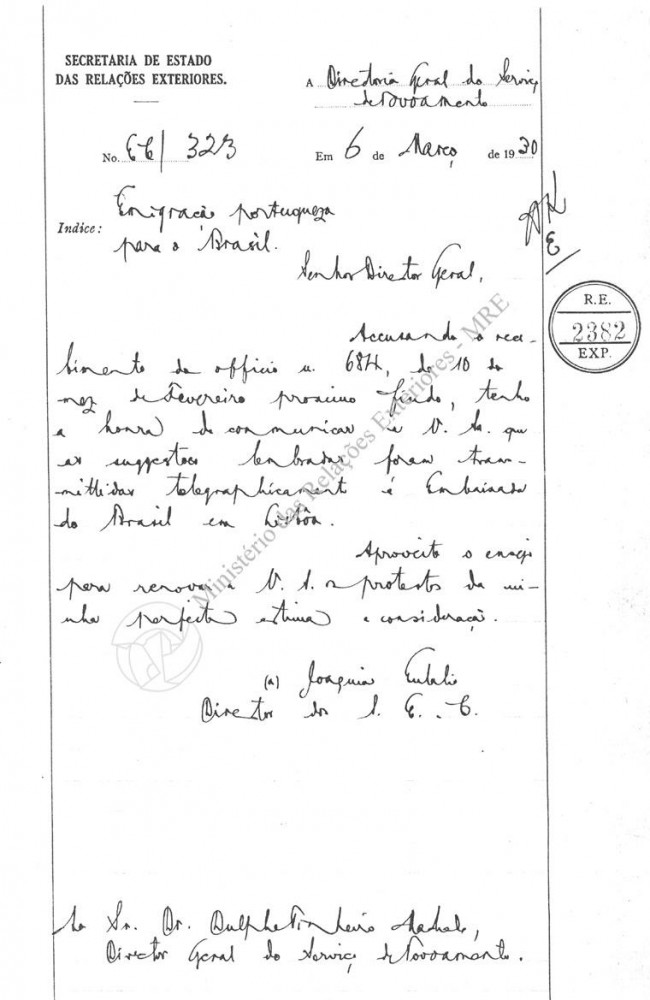 SECRETARIA DE ESTADO
DAS RELAÇÕES EXTERIORES.
A Directoria Geral do Serviço
de Povoamento
No. EC/323
Em 6 de Março de 1930
Indice: Emigração portugueza
para o Brasil.
Senhor Director Geral,
R.E.
2382
EXP.
Accusando o rece-
bimento do officio n. 684, de 10 do
mez de Fevereiro proximo findo, tenho
a honra de communicar a V. Sa. que
as suggestões lembradas foram trans-
mittidas telegraphicamente á Embaixada
do Brasil em Lisbôa.
Aproveito o ensejo
para renovar a V. S. os protestos da mi-
nha perfeita estima e consideração.
(a) Joaquim Eulalio
Director dos S. E. C.
Ao Sr. Dr. Dulphe Pinheiro Machado,
Director Geral do Serviço de Povoamento.
Ministério das Relações Exteriores - MRE